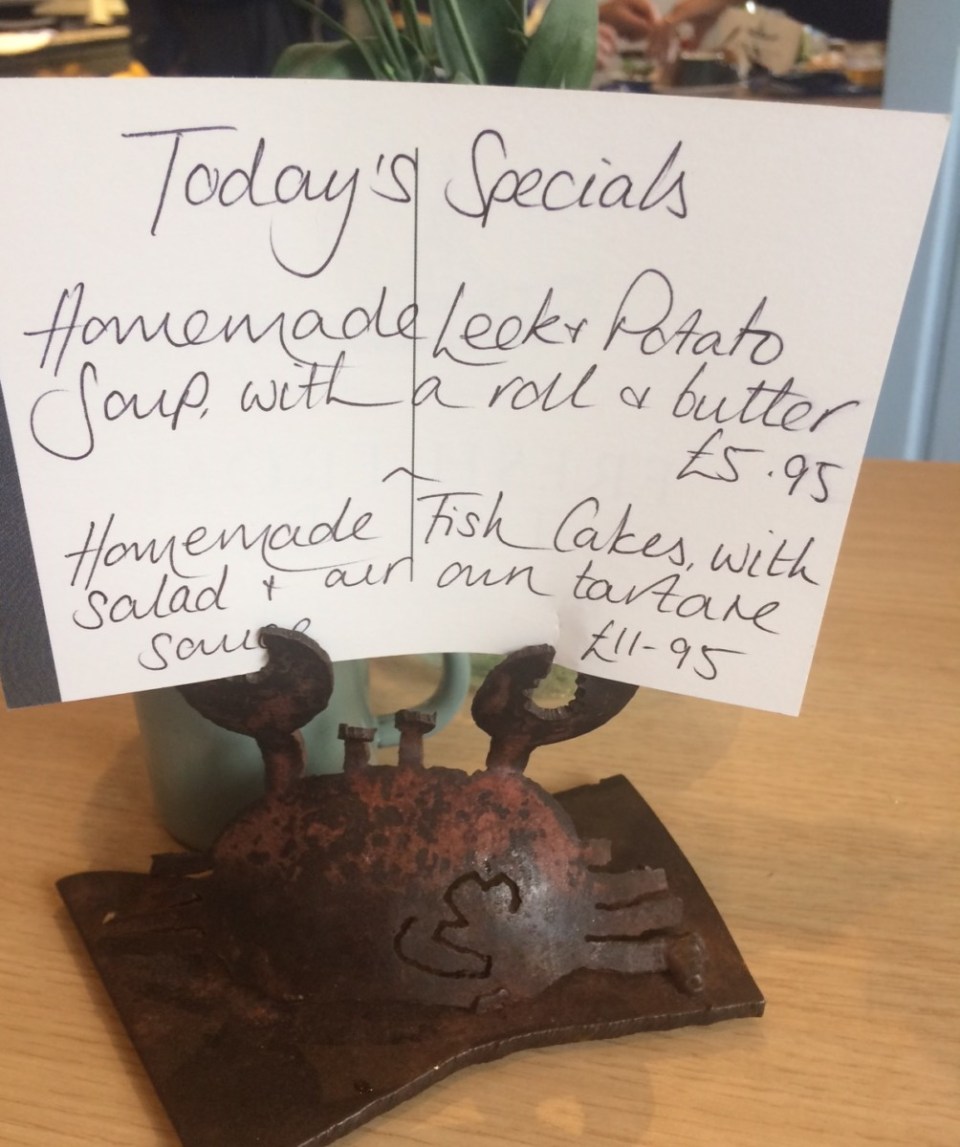 Today's Specials
Homemade Leek & Potato
Soup, with a roll & butter
£5.95
Homemade Fish Cakes, with
salad & our own tartare
sauce £11-95